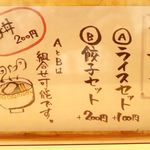 Ⓐライスセット
+100円
Ⓑ餃子セット
+200円
AとBは
組合せ可能です。
丼
200円